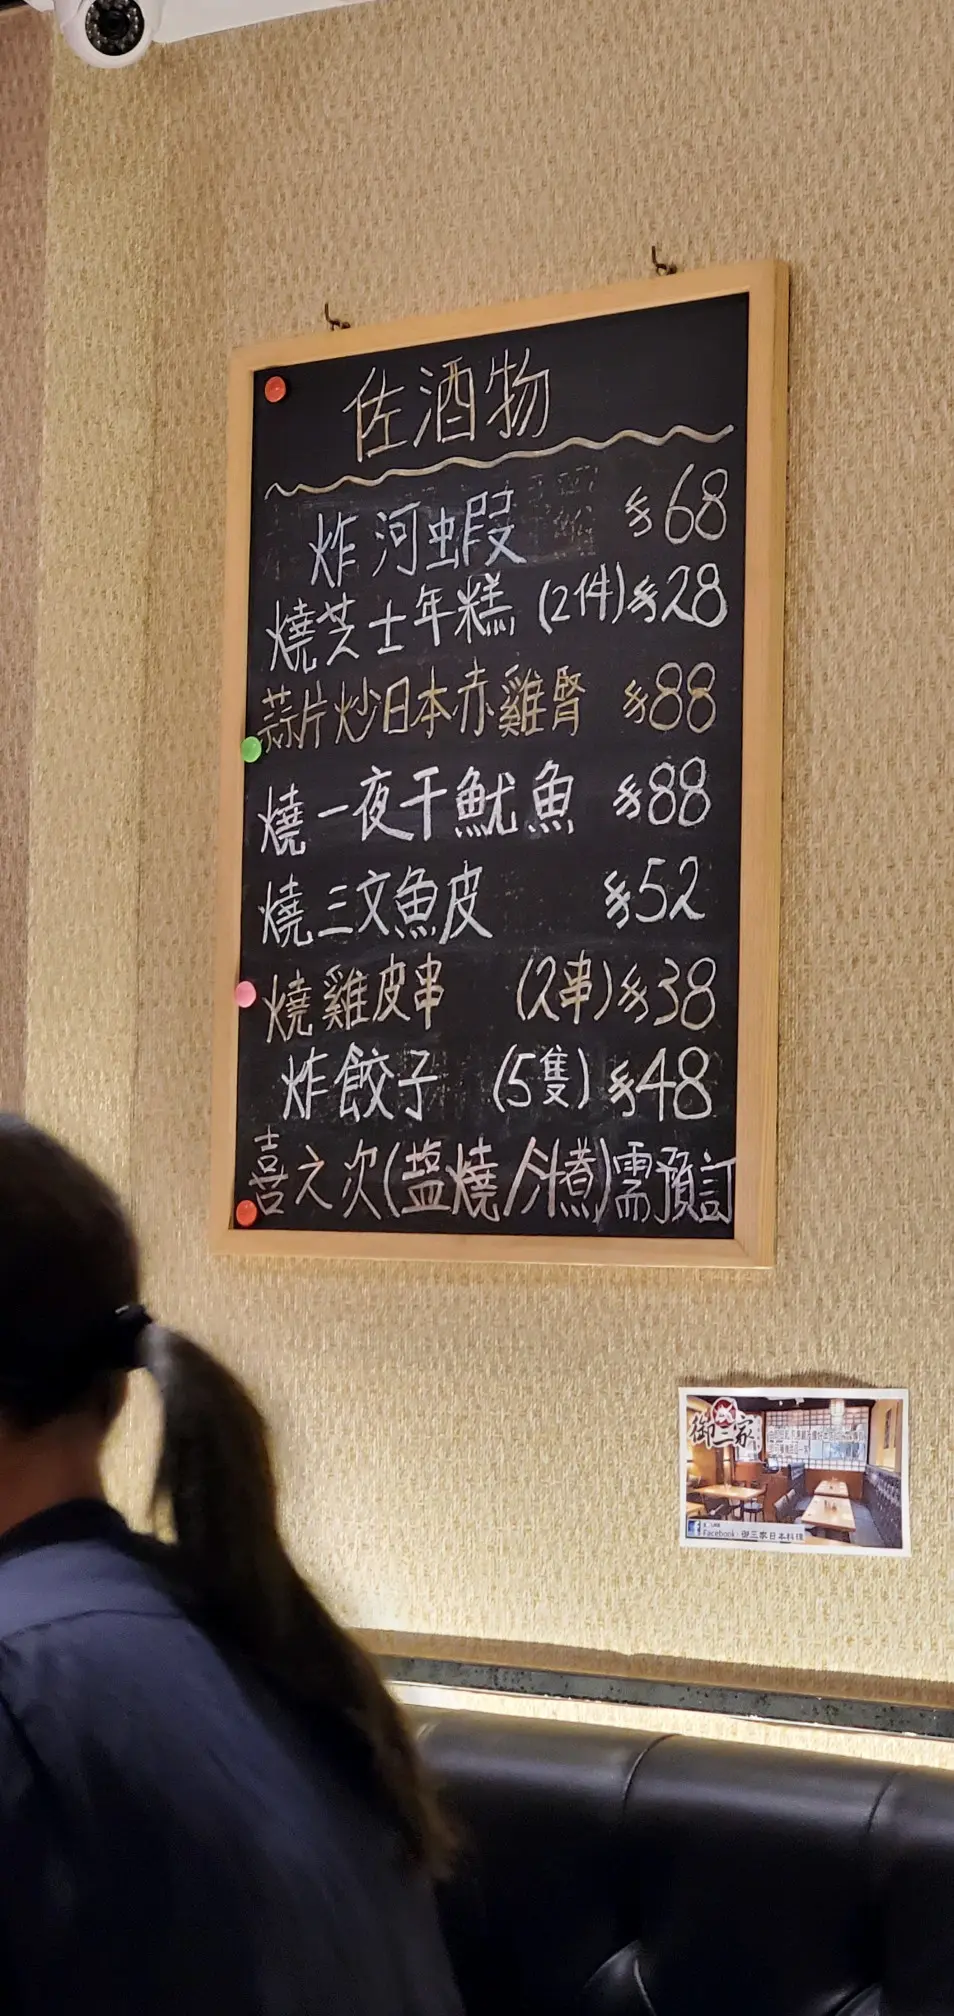 佐酒物
炸河蝦 $68
燒芝士年糕 (2件) $28
蒜片炒日本赤雞腎 $88
燒一夜干魷魚 $88
燒三文魚皮 $52
燒雞皮串 (2串) $38
炸餃子 (5隻) $48
喜之次(塩燒/汁煮)需預訂
御三家
Facebook: 御三家日本料理